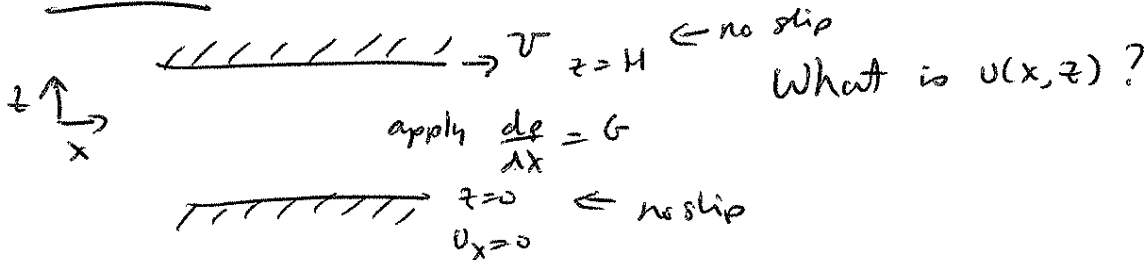 U z = H ← no slip
What is u(x, z) ?
z
x
apply dp/dx = G
z=0 ← no slip
u_x=0